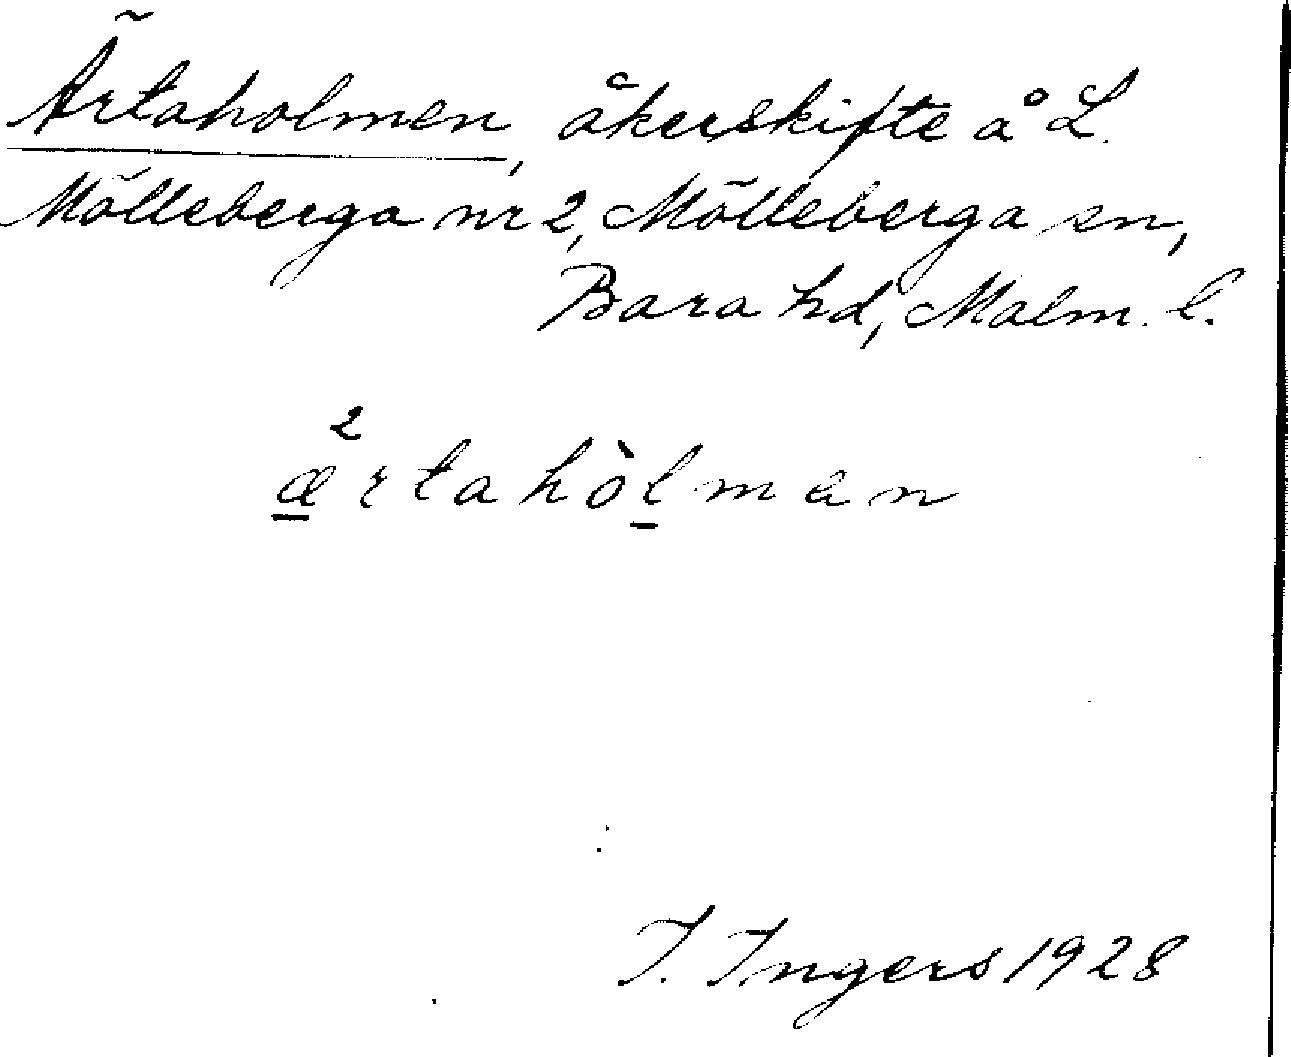 Ärtaholmen, åkerskifte å L.
Mölleberga nr 2, Mölleberga sn,
Bara hd, Malm. l.
2
ærtahòlman
I. Ingers 1928